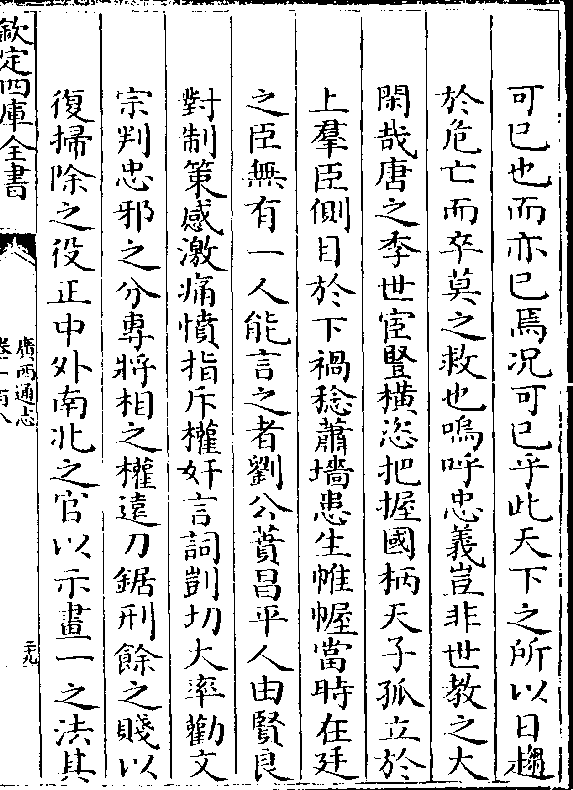 可已也而亦已焉况可已乎此天下之所以日趨
於危亡而卒莫之救也嗚呼忠義豈非世教之大
閑哉唐之季世宦豎横恣把握國柄天子孤立於
上羣臣側目於下禍稔蕭墻患生帷幄當時在廷
之臣無有一人能言之者劉公蕡昌平人由賢良
對制策感激痛憤指斥權奸言詞剴切大率勸文
宗判忠邪之分專將相之權遠刀鋸刑餘之賤以
復掃除之役正中外南北之官以示畫一之法其
欽定四庫全書
廣西通志
卷一百八
二九